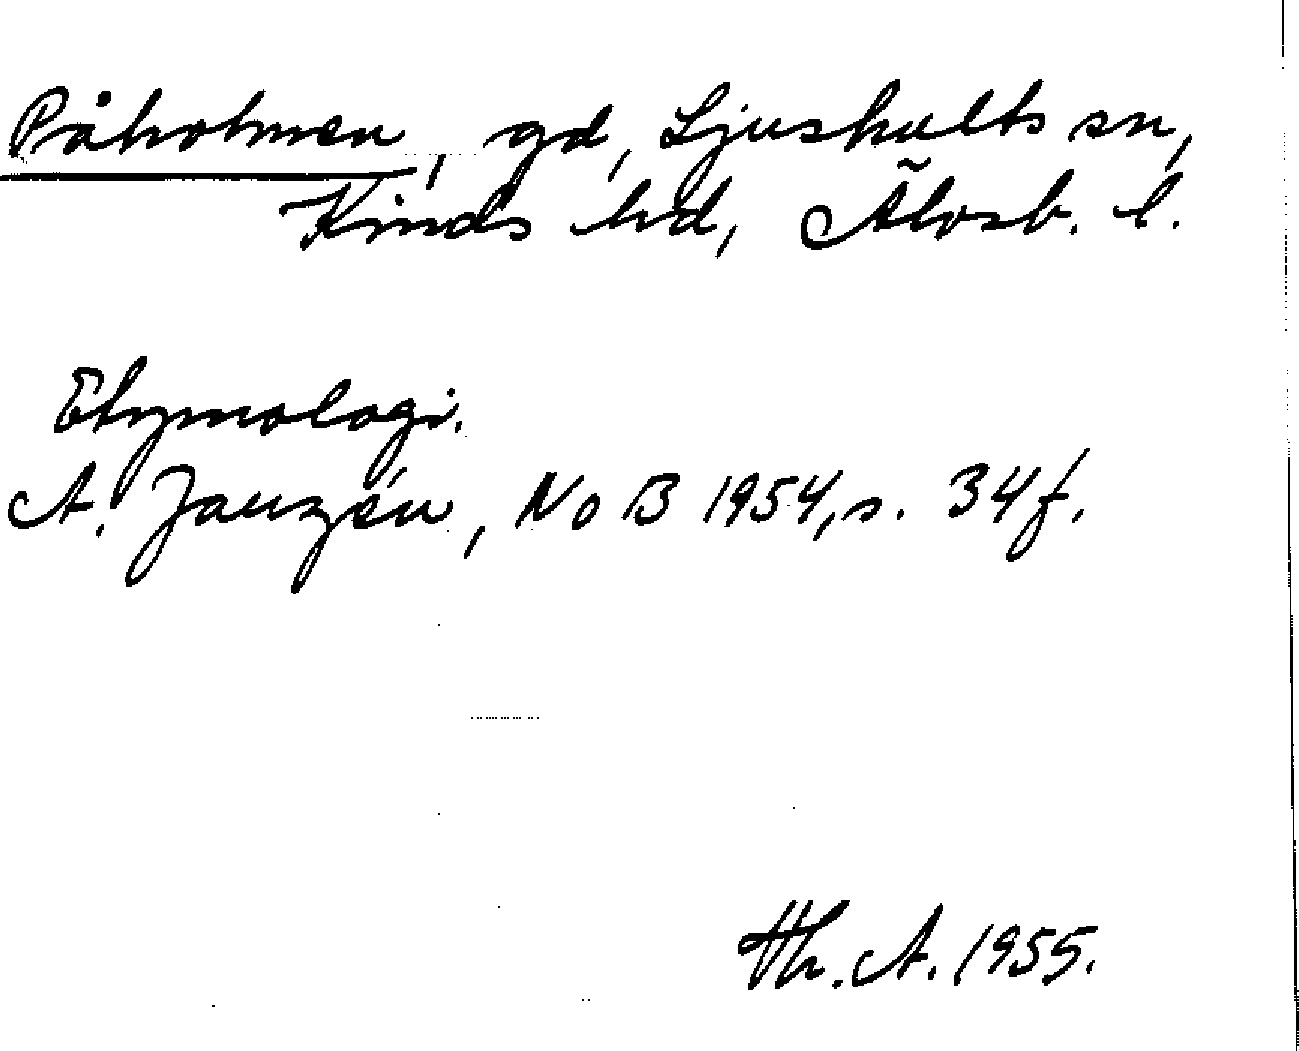 Påholmen, gd, Ljushults sn,
Kinds hd, Älvsb. l.
Etymologi.
A. Janzén, NoB 1954, s. 34 f.
Th. A. 1955.